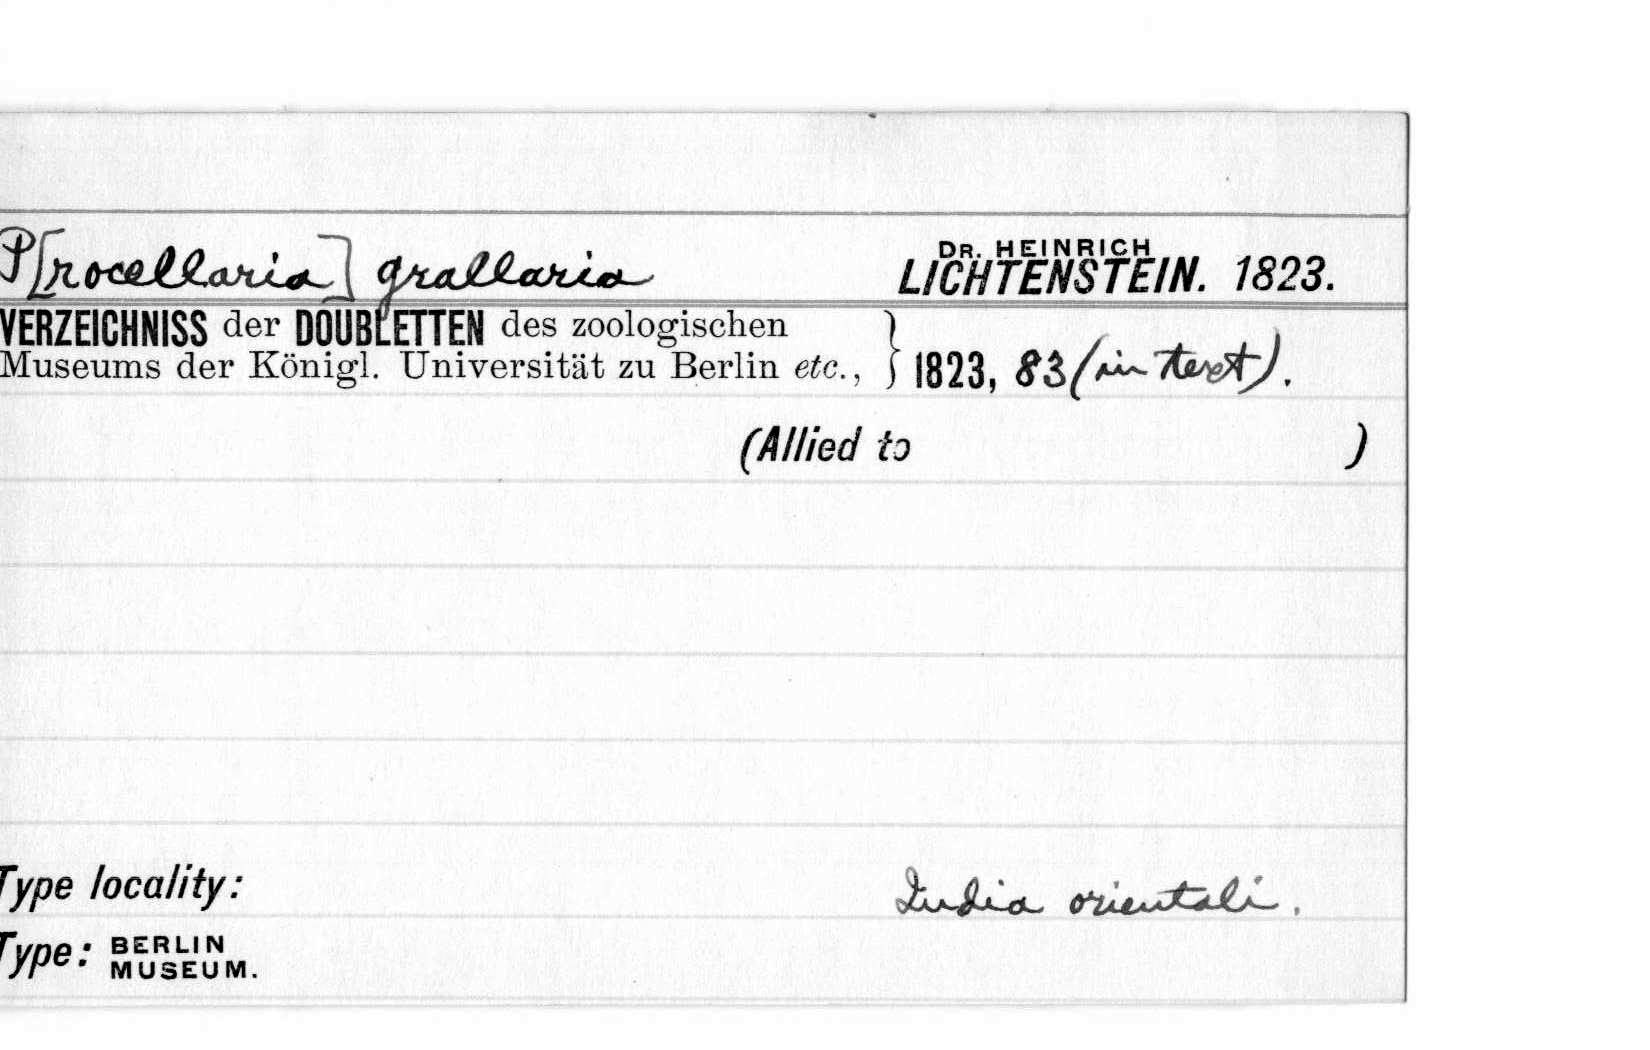 P[rocellaria] grallaria DR. HEINRICH LICHTENSTEIN. 1823.
VERZEICHNISS der DOUBLETTEN des zoologischen
Museums der Königl. Universität zu Berlin etc., } 1823, 83 (in text).
(Allied to )
Type locality: India orientali.
Type: BERLIN MUSEUM.